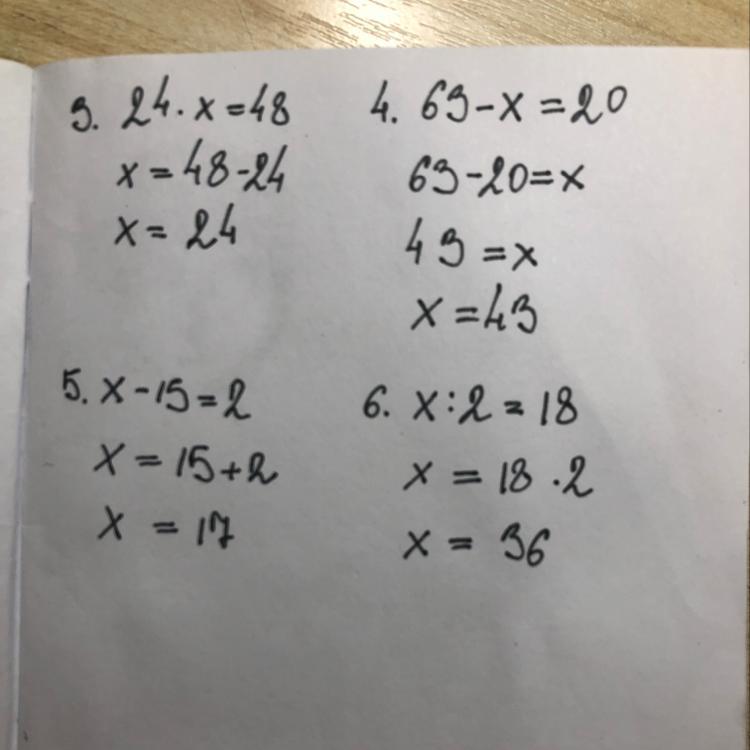 3. 24 · x = 48
x = 48 - 24
x = 24
4. 63 - x = 20
63 - 20 = x
43 = x
x = 43
5. x - 15 = 2
x = 15 + 2
x = 17
6. x : 2 = 18
x = 18 · 2
x = 36